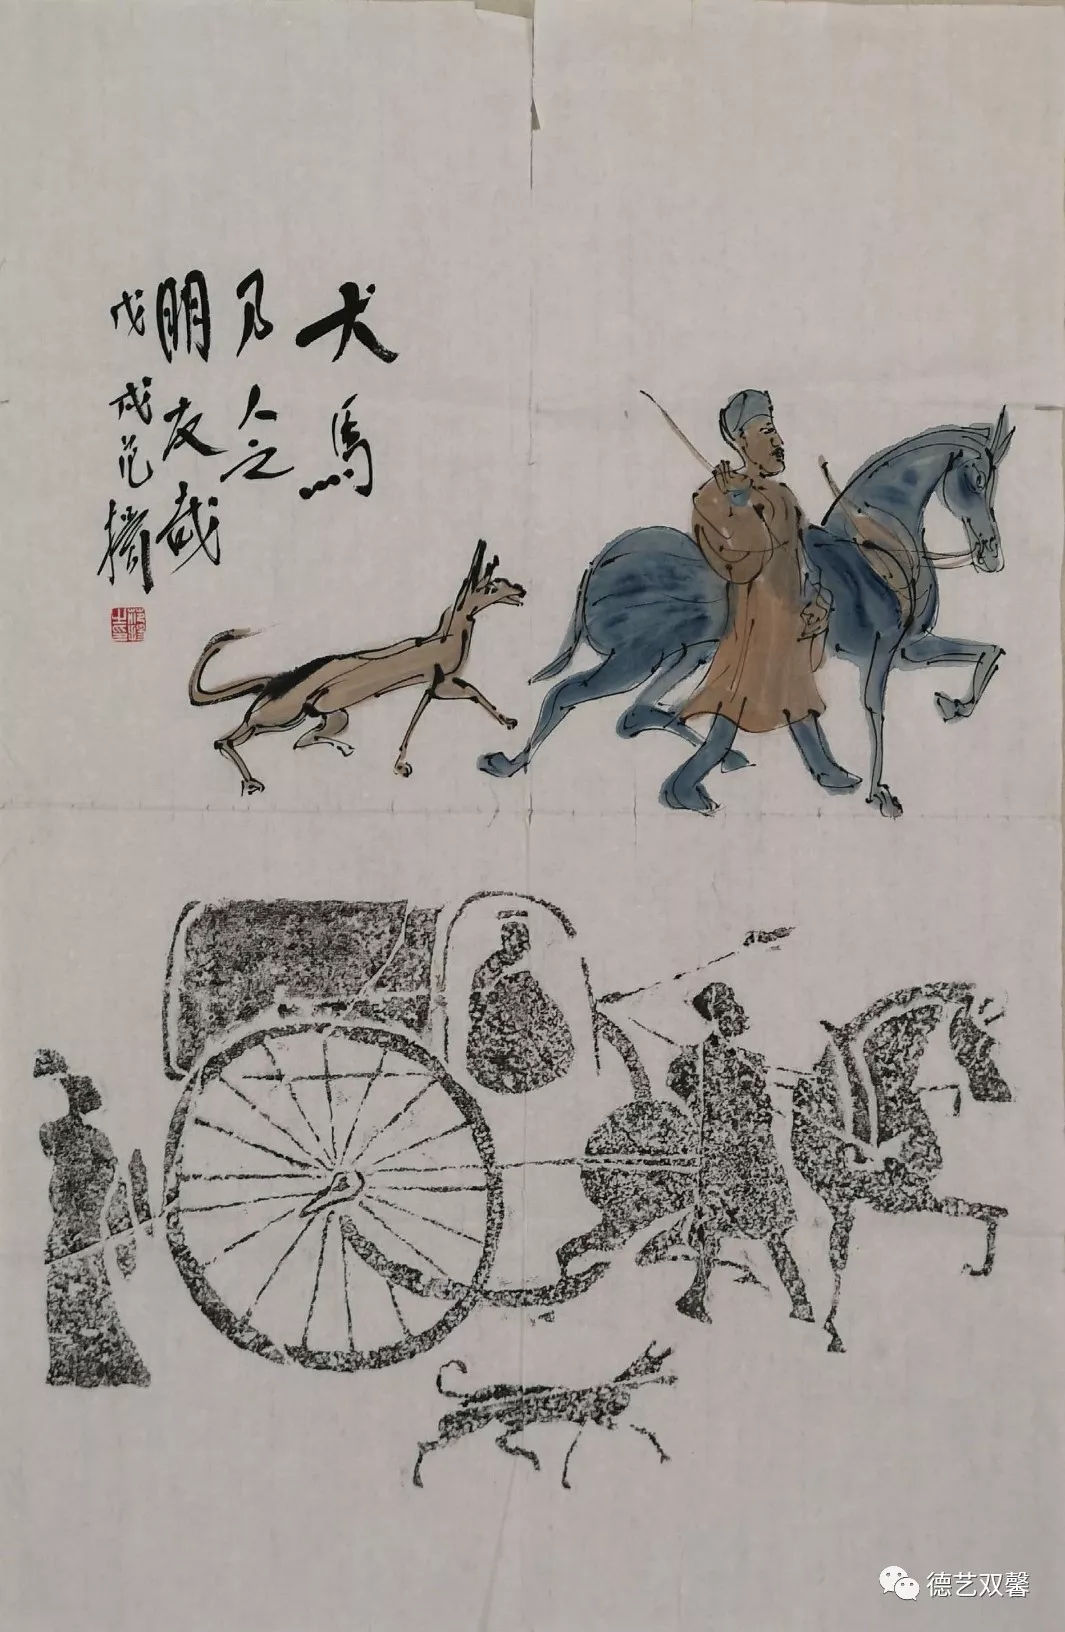 犬馬
乃人之
朋友哉
戊戌范擴
德艺双馨